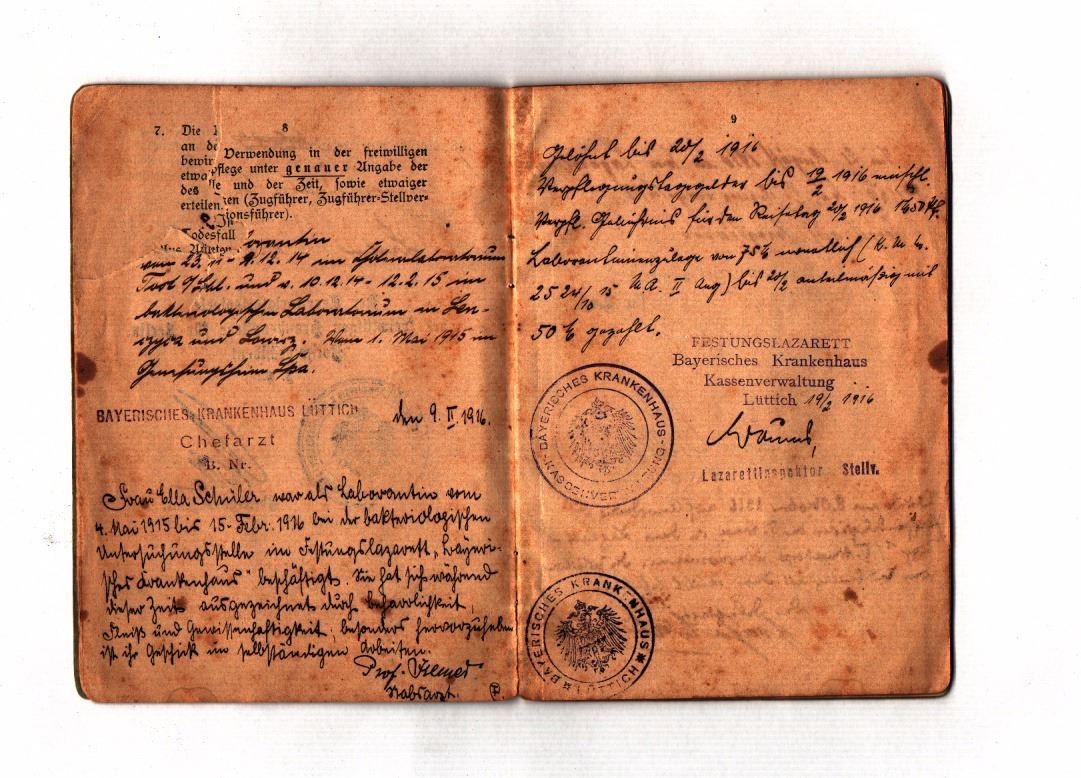 8
7. Die
an de
bewir
etwa
des
erteilen.
Todesfall
Verwendung in der freiwilligen
pflege unter genauer Angabe der
le und der Zeit, sowie etwaiger
en (Zugführer, Zugführer-Stellver-
ionsführer).
vom 23. 11 - 9.12.14 im
und v. 10.12.14 - 12.2.15 im
bakteriologischen Laboratorium in
und Lowicz. Vom 1. Mai 1915 im
Genesungsheim Spa.
BAYERISCHES KRANKENHAUS LÜTTICH den 9. II. 1916.
Chefarzt
B. Nr.
Frau Ella Schüler war als Laborantin vom
4. Mai 1915 bis 15. Febr. 1916 bei der bakteriologischen
Untersuchungsstelle im Festungslazarett „Bayeri-
sches Krankenhaus" beschäftigt. Sie hat sich während
dieser Zeit ausgezeichnet durch Beharrlichkeit,
Fleiß und Gewissenhaftigkeit; besonders hervorzuheben
ist ihr Geschick im selbständigen Arbeiten.
Prof.
Stabsarzt.
9
Gelöhnt bis 20/2 1916
Verpflegungstagegelder bis 19/2 1916 einschl.
Verpfl. Gebührnis für den Reisetag 20/2 1916
Laborantinnenzulage von 75 M monatlich
25 24/10 15 bis 20/2 anteilmäßig mit
50 M gezahlt.
FESTUNGSLAZARETT
Bayerisches Krankenhaus
Kassenverwaltung
Lüttich 19/2 1916
Lazarettinspektor Stellv.
BAYERISCHES KRANKENHAUS
KASSENVERWALTUNG
BAYERISCHES KRANKENHAUS
LÜTTICH